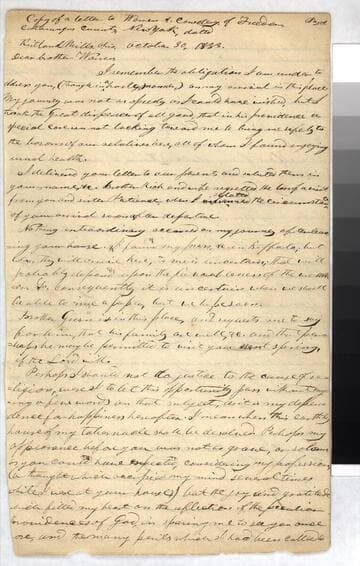 Copy of a letter to Warren A. Cowdery of Freedom
Cattaraugus County New York, dated
Kirtland Mills Ohio October 30, 1833.
Dear brother Warren
I remember the obligation I am under to
address you, on my arrival in this place.
My journey was not as speedy as I could have wished, but I
thank the Great disposer of all good, that in his providence a
special care was not lacking toward me to bring me safely to
the bosoms of our relatives here, all of whom I found enjoying
usual health.
I delivered your letter to our parents and saluted them in
your name, &c. brother and wife regretted the loss of a visit
from you and sister Patience, when I the circumstances
of your and reason of as departure
Nothing extraordinary occurred on my journey after leaving
your house. I found my press, &c in Buffalo, but
when they will arrive here, to me is uncertain; that will
probably depend upon the furiousness of the winds
&c. Consequently it is uncertain when we shall
be able to issue a paper, but we hope soon.
brother is in this place, and requests me to say
for him that his family are well, &c. and that perhaps
he may be permitted to visit you next spring,
if the Lord will.
Perhaps I should not do justice to the cause of religion,
were I to let this opportunity pass without saying
a few words on that subject, as it is my dependence
for happiness hereafter, I mean when this earthly
house of my tabernacle shall be dissolved. Perhaps my
appearance before you was not so grave, or solemn
as you could have expected, considering my profession,
(a thought which occupied my mind several times
while I was at your house) but the joy and gratitude
which filled my heart on the reflection of the
providences of God, in sparing me to see you once
more, and the many perils which I had been called to